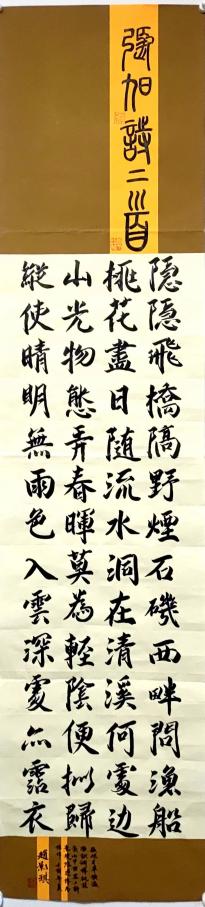 張旭詩二首
隐隐飛橋隔野煙石磯西畔問漁船
桃花盡日随流水洞在清溪何處边
山光物態弄春暉莫為輕陰便拟歸
縱使晴明無雨色入雲深處亦霑衣